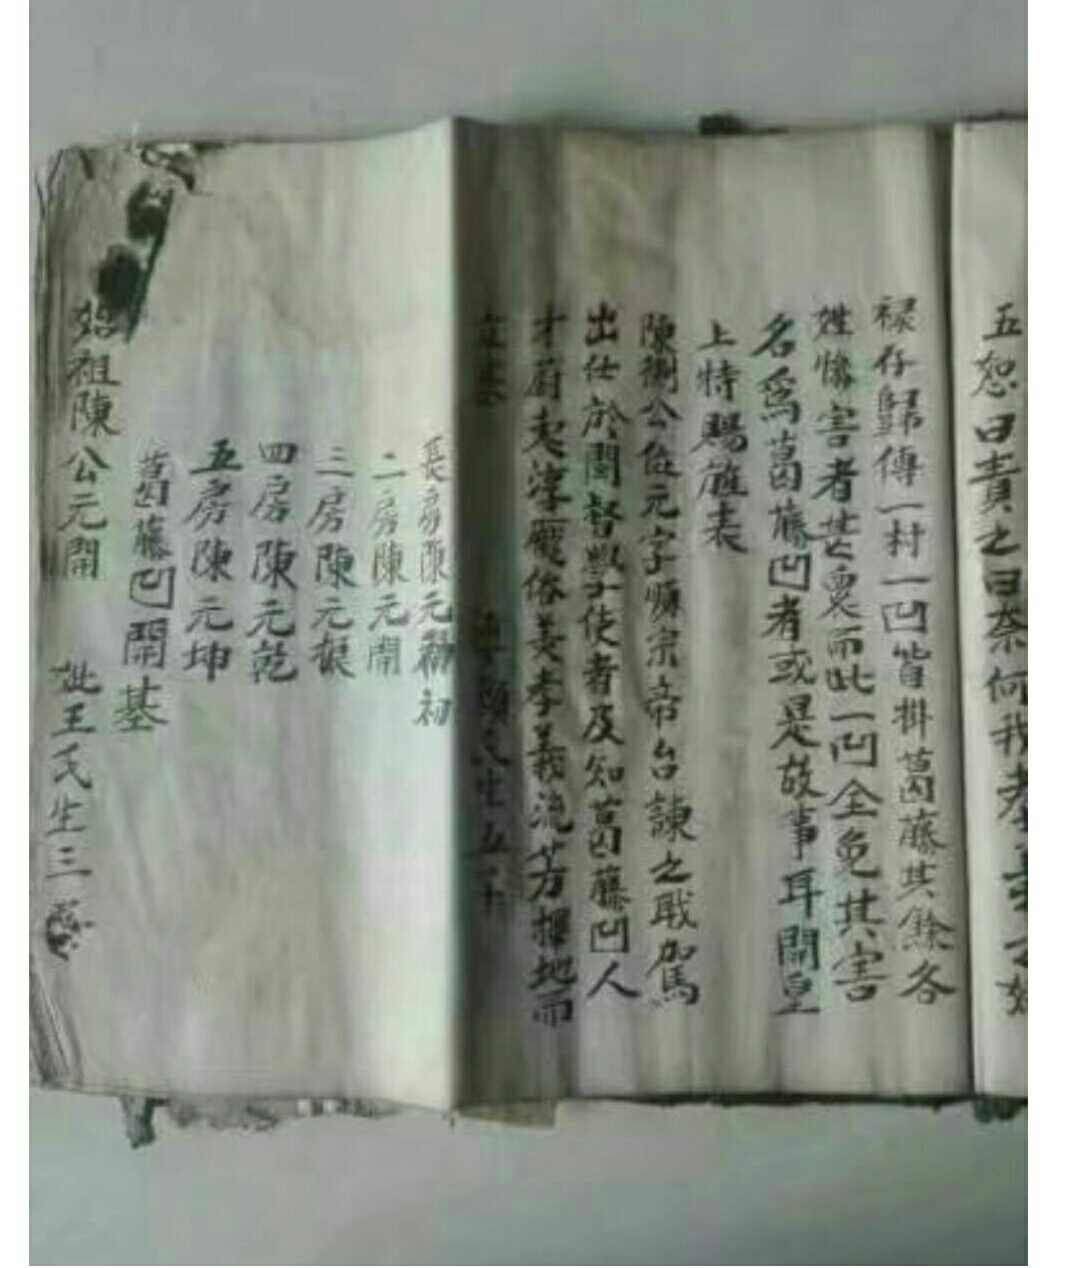 五恕曰責之曰奈何我孝
祿存歸傳一村一凹皆掛葛藤其餘各
姓慘害者甚衆而此一凹全免其害
名爲葛藤凹者或是故事耳開皇
上特賜旌表
陳衡公位元字 宗帝台諫之職駕
出仕於閩督學使者及知葛藤凹人
才蔚起淳龐俗美孝義流芳擇地而
立基 氏生五子
長房陳元勳初
二房陳元開
三房陳元振
四房陳元乾
五房陳元坤
葛藤凹開基
始祖陳公元開 妣王氏生三